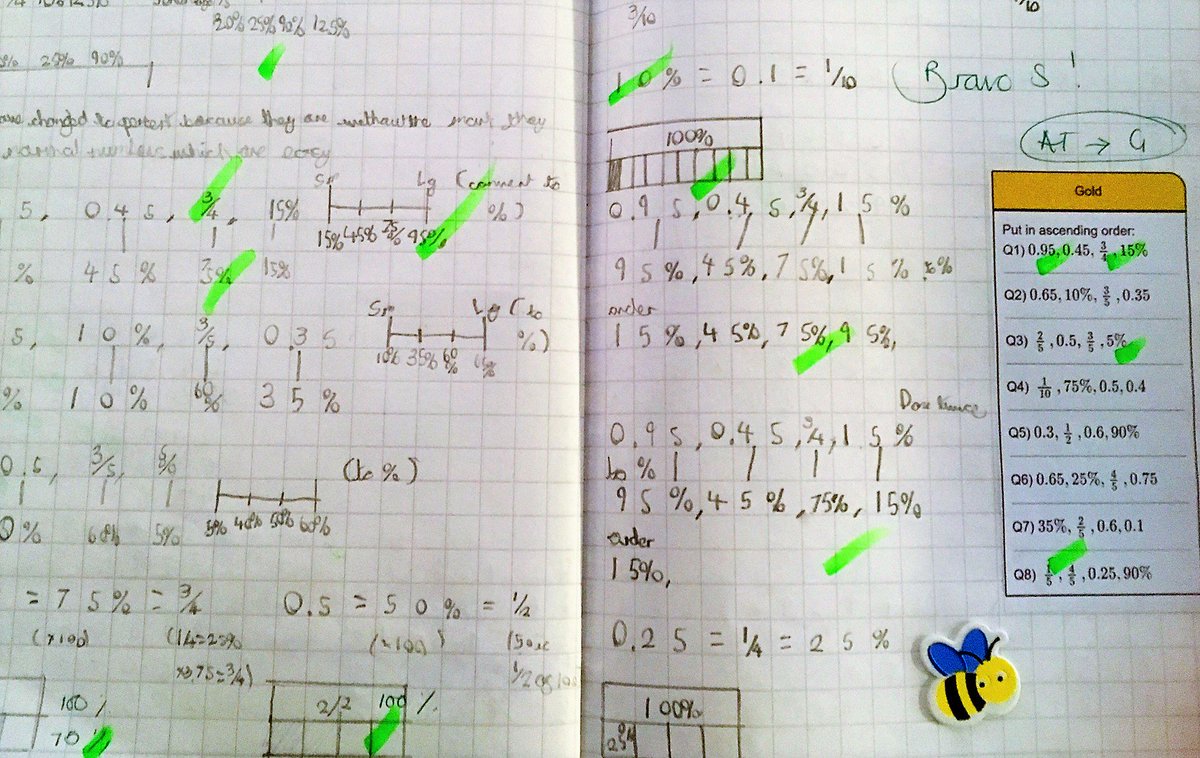 20% 25% 90% 125%
25% 90%
changed to percent because they are without the mark they
which are easy
Sm Lg (convert to %)
5, 0.45, 3/4, 15%
15% 45% 75% 95%
% 45% 75% 15%
Sm Lg (to %)
5, 10%, 3/5, 0.35
10% 35% 60%
% 10% 60% 35%
0.5, 3/5, 5% (to %)
0% 60% 5%
5% 40% 50% 60%
= 75% = 3/4 0.5 = 50% = 1/2
(×100) (×100)
0.75=3/4)
1/2 of 100
100%
2/2 100%
3/10
10% = 0.1 = 1/10 Bravo S!
AT → G
100%
0.95, 0.45, 3/4, 15%
95%, 45%, 75%, 15%
order
15%, 45%, 75%, 95%,
Done twice
0.95, 0.45, 3/4, 15%
to %
95%, 45%, 75%, 15%
order
15%,
0.25 = 1/4 = 25%
100%
25%
Gold
Put in ascending order:
Q1) 0.95, 0.45, 3/4, 15%
Q2) 0.65, 10%, 3/5, 0.35
Q3) 2/5, 0.5, 3/5, 5%
Q4) 1/10, 75%, 0.5, 0.4
Q5) 0.3, 1/2, 0.6, 90%
Q6) 0.65, 25%, 4/5, 0.75
Q7) 35%, 2/5, 0.6, 0.1
Q8) 1/5, 4/5, 0.25, 90%